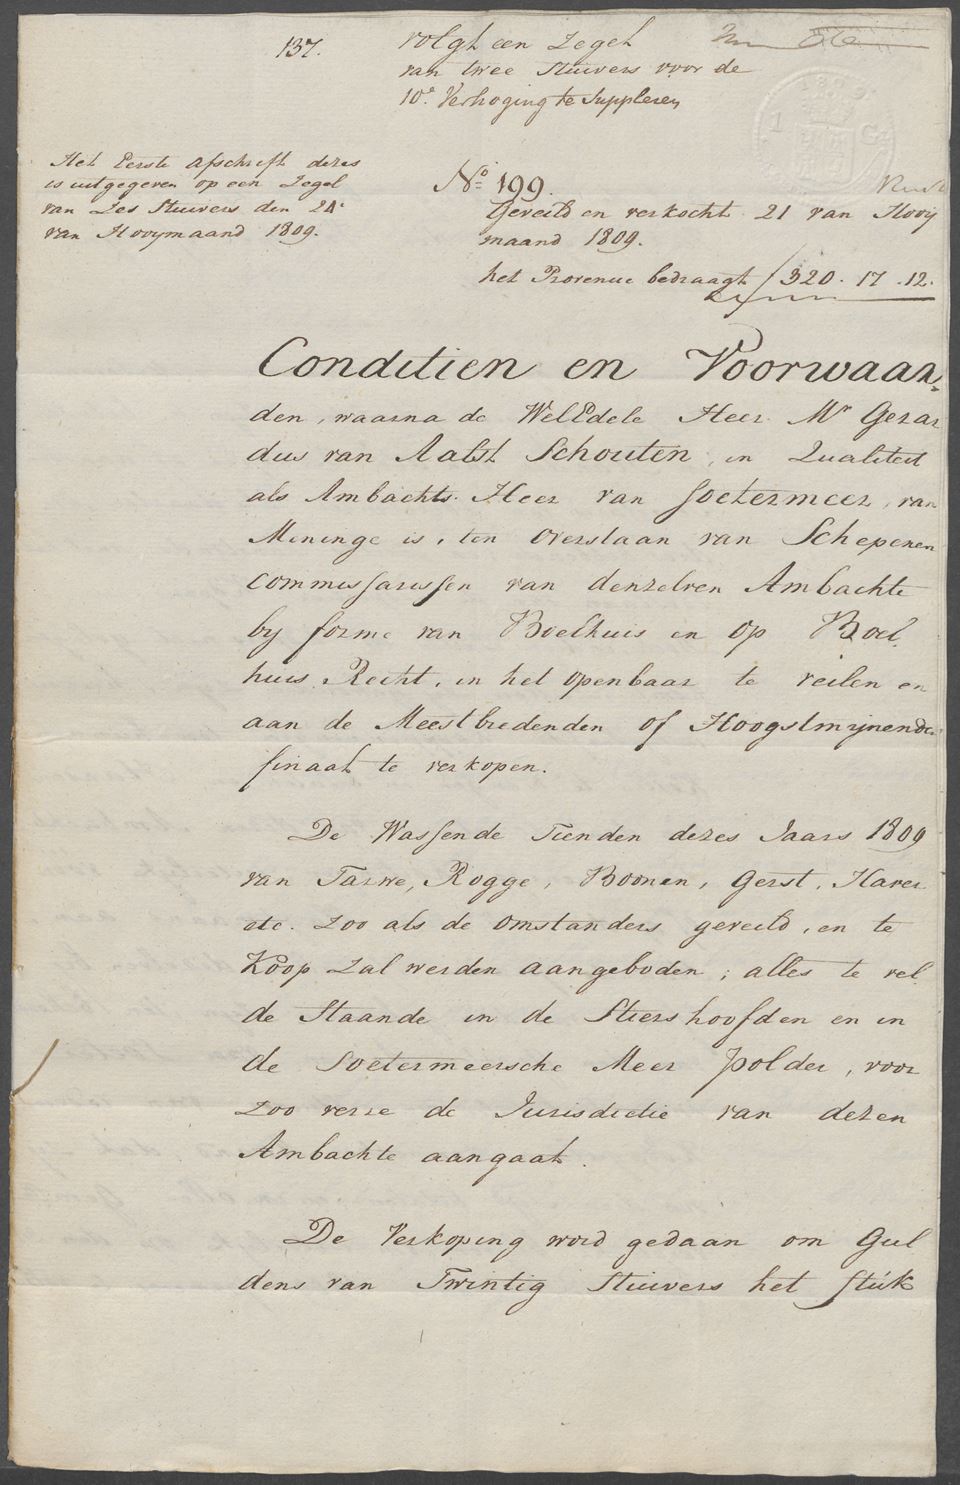 137.
volgt een Zegel
van twee Stuivers voor de
10e Verhoging te Suppleren
1809
1 G
Het Eerste Afschrift dezes
is uitgegeven op een Zegel
van Zes Stuivers den 24e
van Hooymaand 1809.
No 199.
Geveild en verkocht 21 van Hooij
maand 1809.
het Provenue bedraagt ƒ 320. 17. 12.
Conditien en Voorwaar,
den, waarna de WelEdele Heer Mr Gerar
dus van Aalst Schouten, in Qualiteit
als Ambachts Heer van Soetermeer, van
Meninge is, ten Overstaan van Schepenen
Commissarissen van denzelven Ambachte
by forme van Boelhuis en op Boel
huis Recht, in het openbaar te veilen en
aan de Meestbiedenden of Hoogstmijnende
finaal te verkopen.
De Wassende Tienden dezes Jaars 1809
van Tarwe, Rogge, Boonen, Gerst, Haver
etc. zoo als de Omstanders geveild, en te
Koop zal werden aangeboden, alles te vel
de Staande in de Stiershoofden en in
de Soetermeersche Meer polder, voor
zoo verre de Jurisdictie van dezen
Ambachte aangaat.
De Verkoping word gedaan om Gul
dens van Twintig Stuivers het Stuk